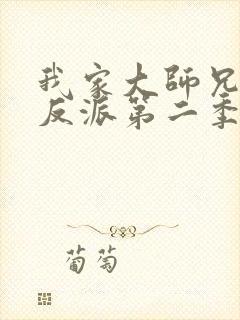 我家大师兄
反派第二季
葡萄